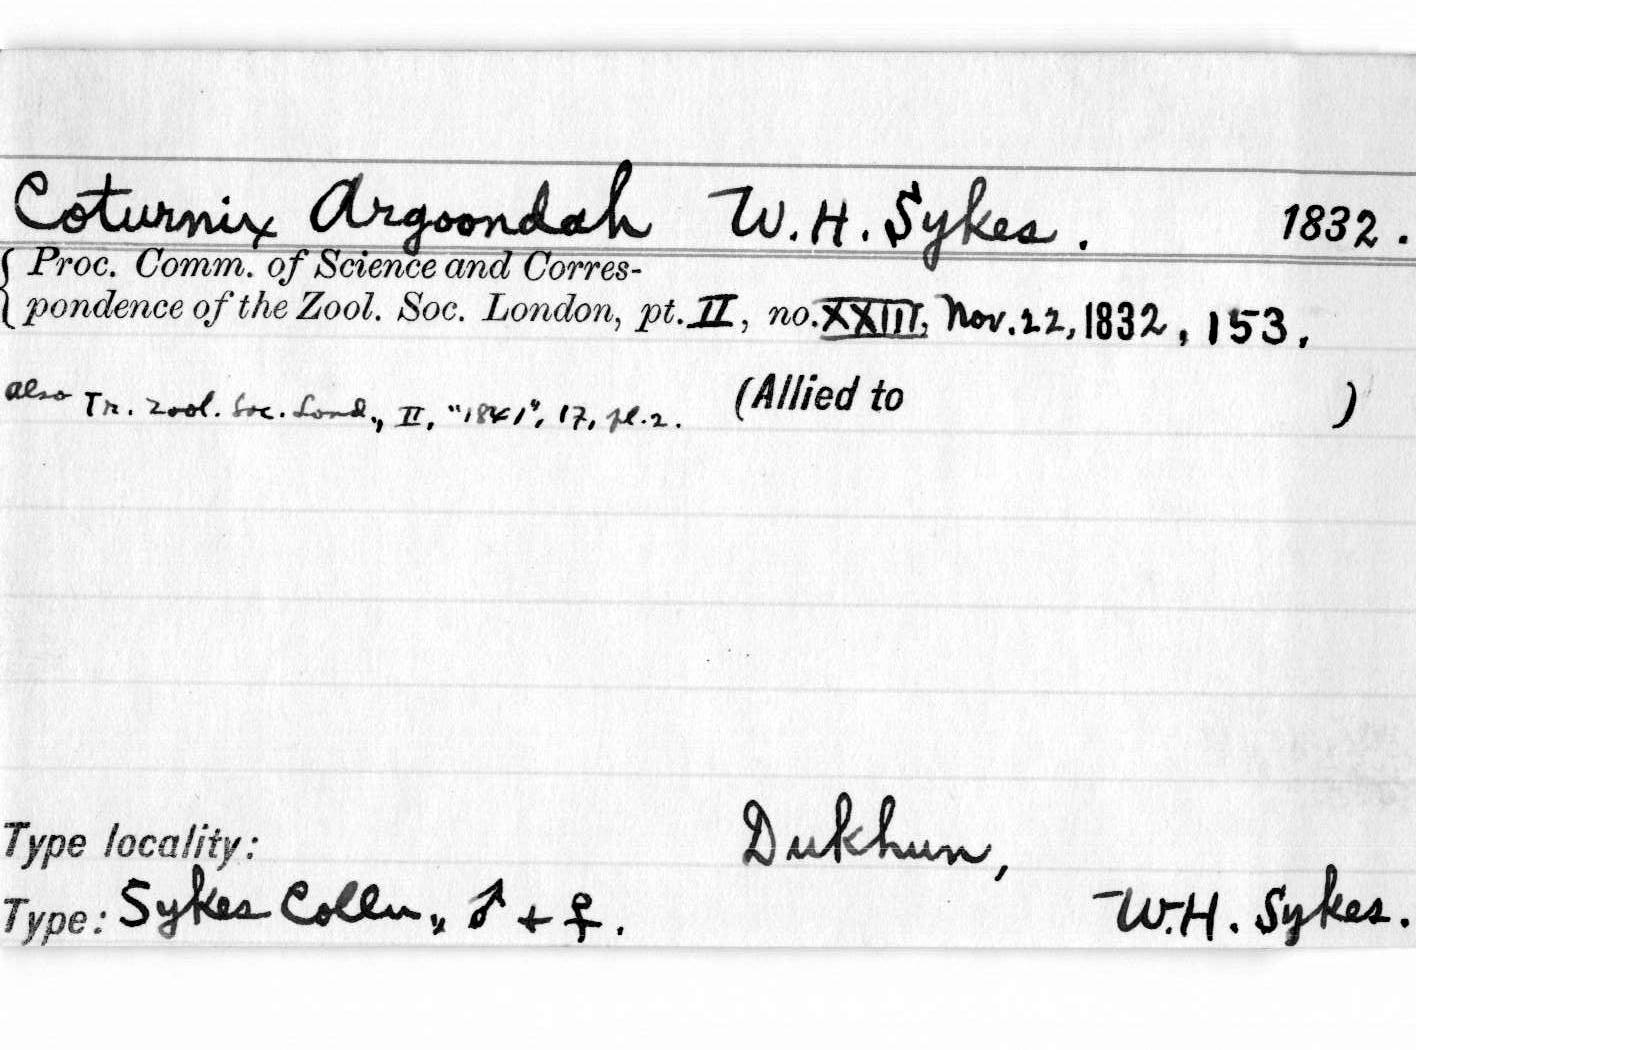 Coturnix Argoondah W.H. Sykes. 1832.
Proc. Comm. of Science and Corres-
pondence of the Zool. Soc. London, pt. II, no. XXIII, Nov. 22, 1832, 153.
also Tr. Zool. Soc. Lond., II, "1841", 17, pl. 2. (Allied to )
Type locality: Dukhun,
Type: Sykes Colln., ♂ + ♀. W.H. Sykes.